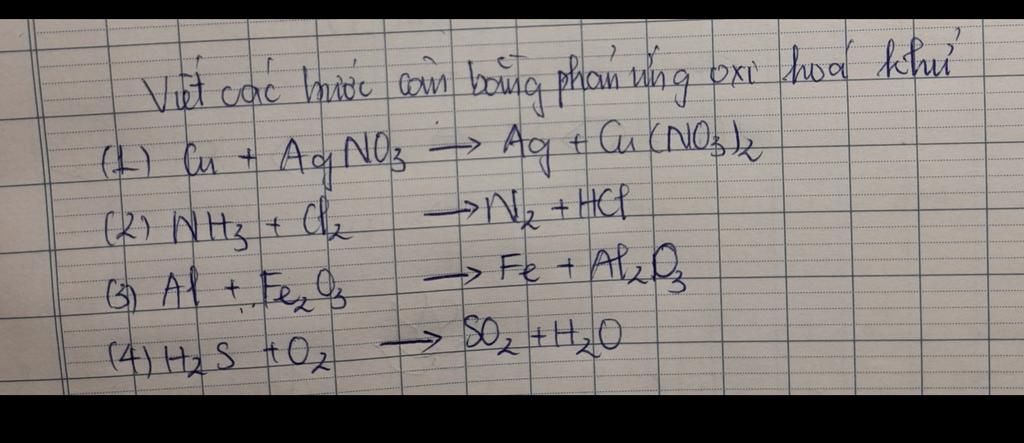 Viết các bước cân bằng phản ứng oxi hoá khử
(1) Cu + AgNO₃ → Ag + Cu(NO₃)₂
(2) NH₃ + Cl₂ → N₂ + HCl
(3) Al + Fe₂O₃ → Fe + Al₂O₃
(4) H₂S + O₂ → SO₂ + H₂O